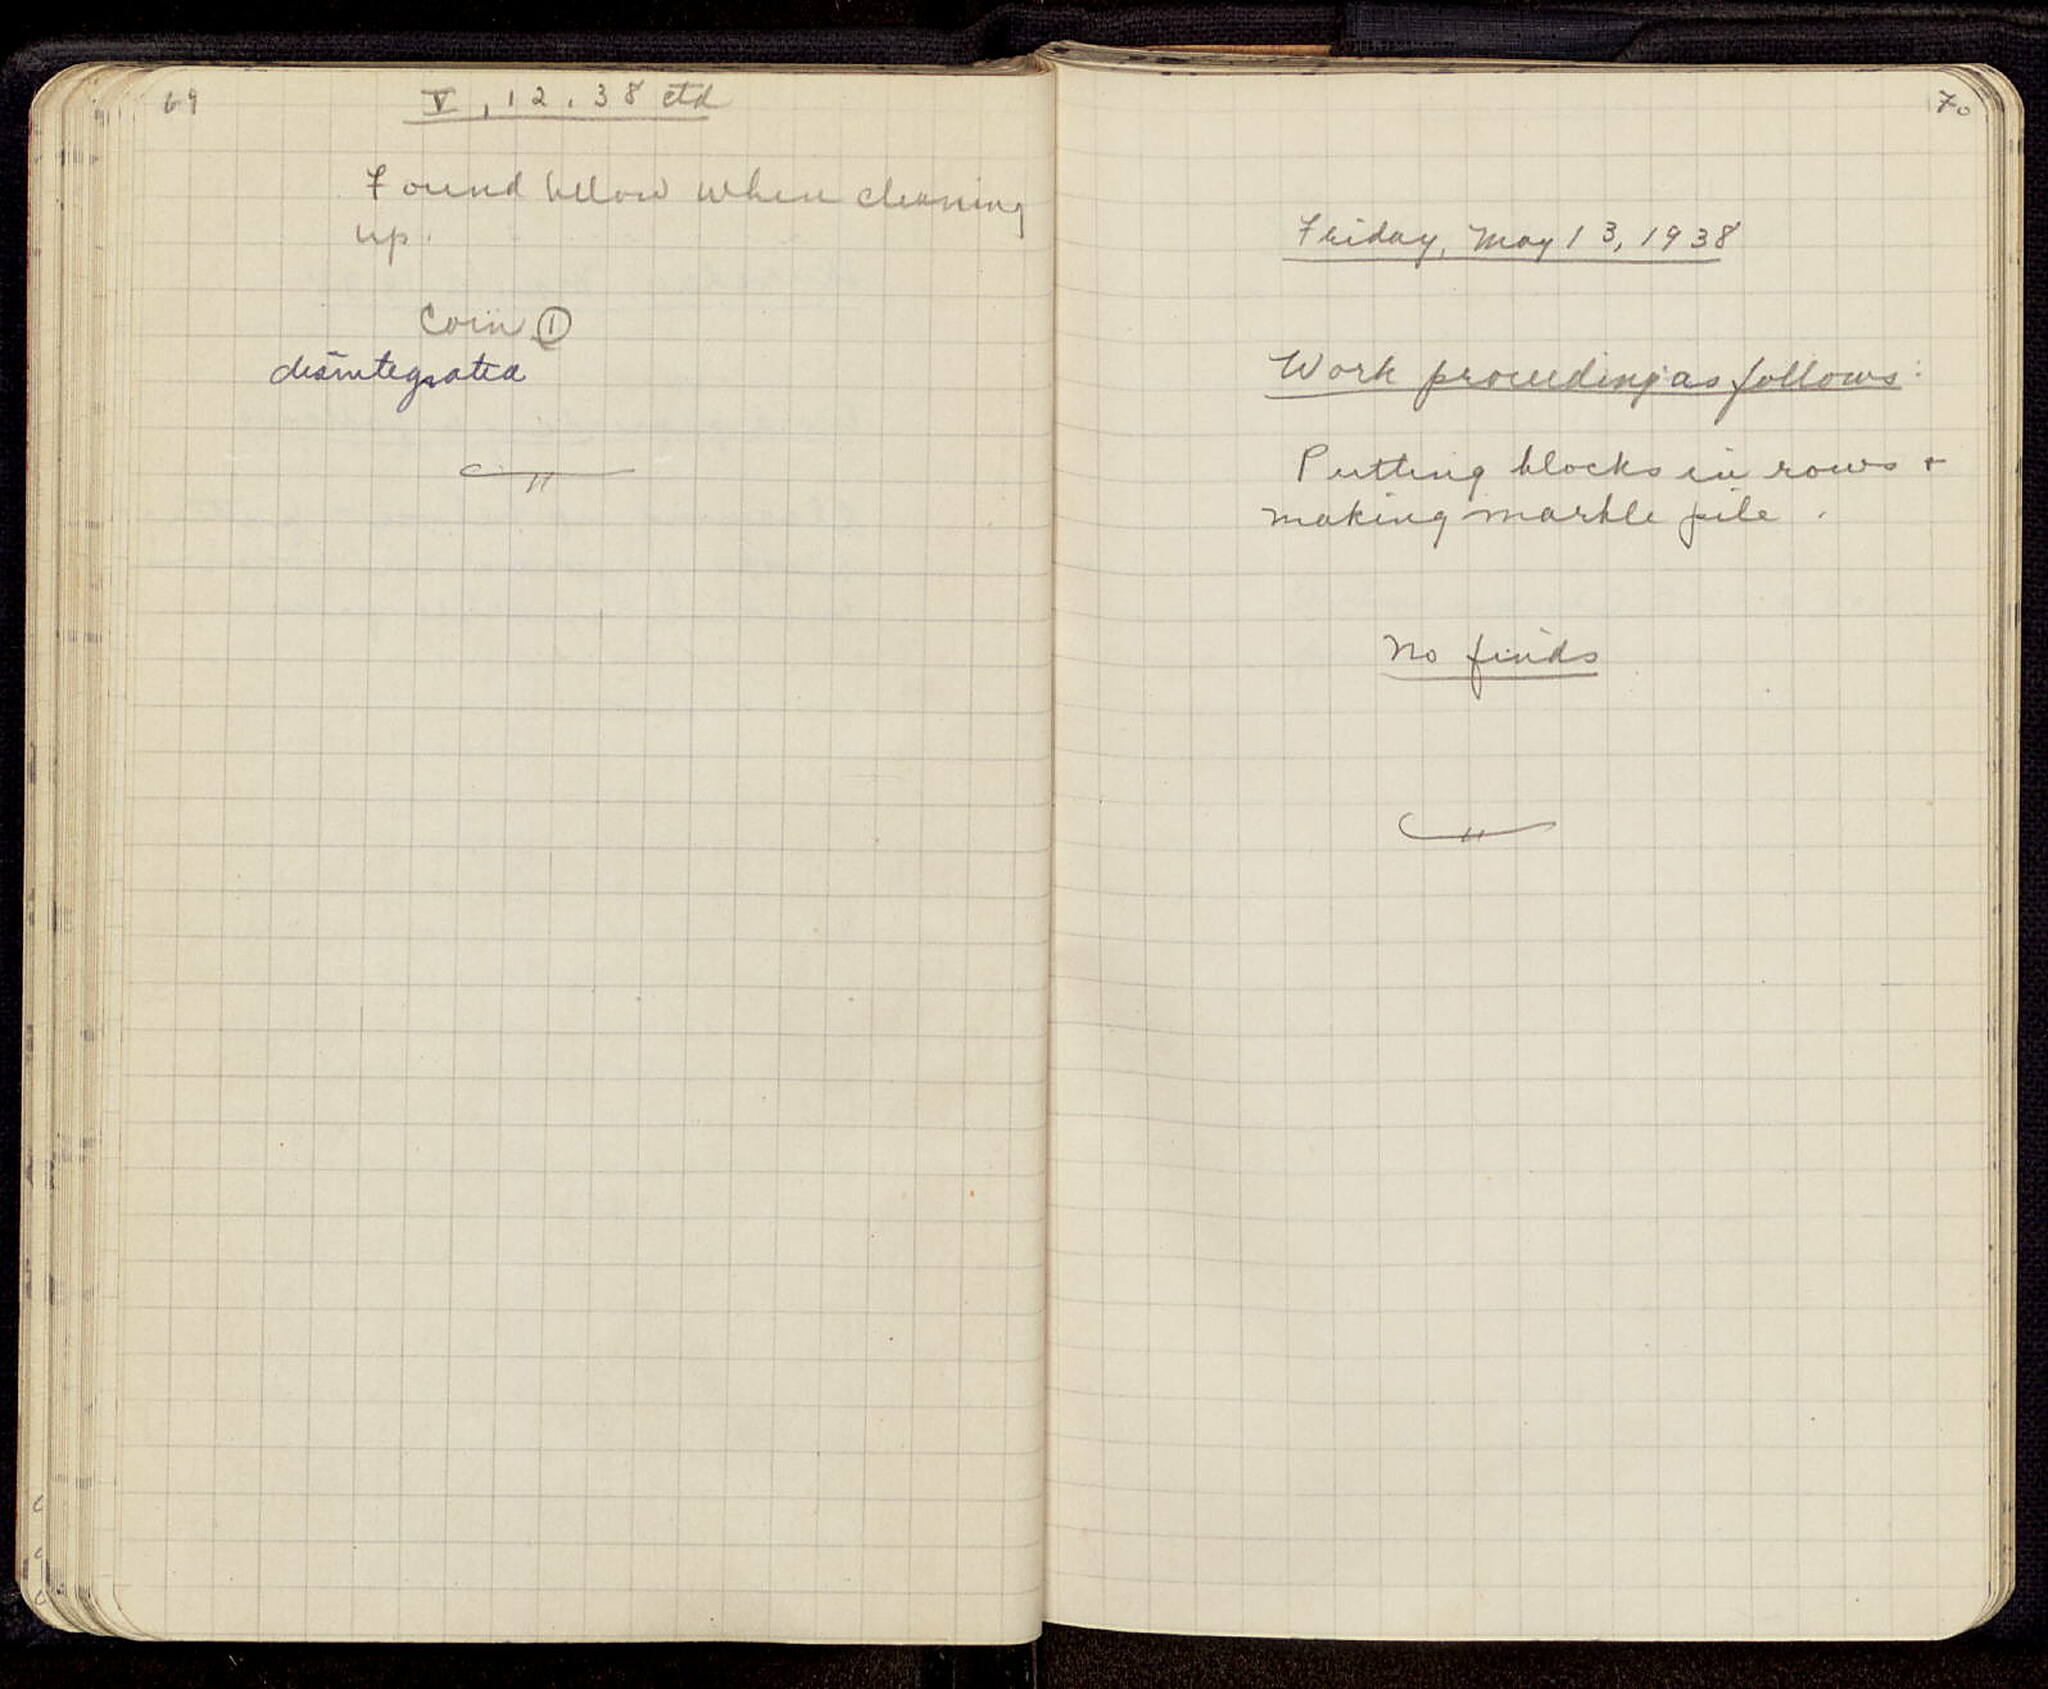 69
V, 12. 38 ctd
Found below when cleaning
up.
Coin ①
disintegrated
70
Friday, May 13, 1938
Work proceeding as follows:
Putting blocks in rows +
making marble pile.
No finds